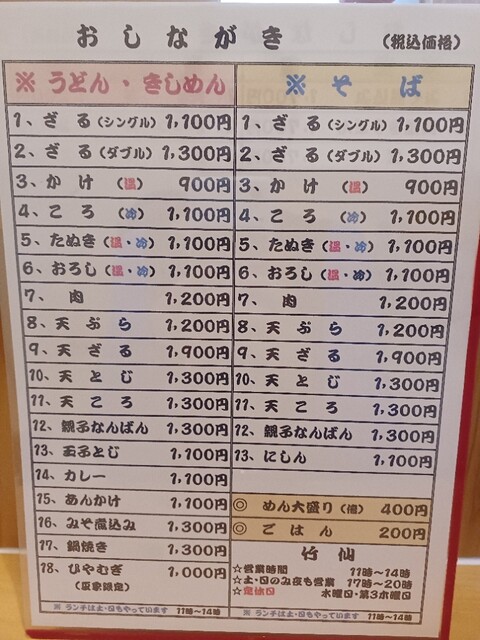 おしながき (税込価格)
※ うどん・きしめん
1、ざる(シングル) 1,100円
2、ざる(ダブル) 1,300円
3、かけ(温) 900円
4、ころ(冷) 1,100円
5、たぬき(温・冷) 1,100円
6、おろし(温・冷) 1,100円
7、肉 1,200円
8、天ぷら 1,200円
9、天ざる 1,900円
10、天とじ 1,300円
11、天ころ 1,300円
12、親子なんばん 1,300円
13、玉子とじ 1,100円
14、カレー 1,100円
15、あんかけ 1,100円
16、みそ煮込み 1,300円
17、鍋焼き 1,300円
18、ひやむぎ 1,000円
(夏家限定)
※ ランチは土・日もやっています 11時〜14時
※ そば
1、ざる(シングル) 1,100円
2、ざる(ダブル) 1,300円
3、かけ(温) 900円
4、ころ(冷) 1,100円
5、たぬき(温・冷) 1,100円
6、おろし(温・冷) 1,100円
7、肉 1,200円
8、天ぷら 1,200円
9、天ざる 1,900円
10、天とじ 1,300円
11、天ころ 1,300円
12、親子なんばん 1,300円
13、にしん 1,100円
◎ めん大盛り(倍) 400円
◎ ごはん 200円
竹仙
☆営業時間 11時〜14時
☆土・日のみ夜も営業 17時〜20時
☆定休日 水曜日・第3木曜日
※ ランチは土・日もやっています 11時〜14時